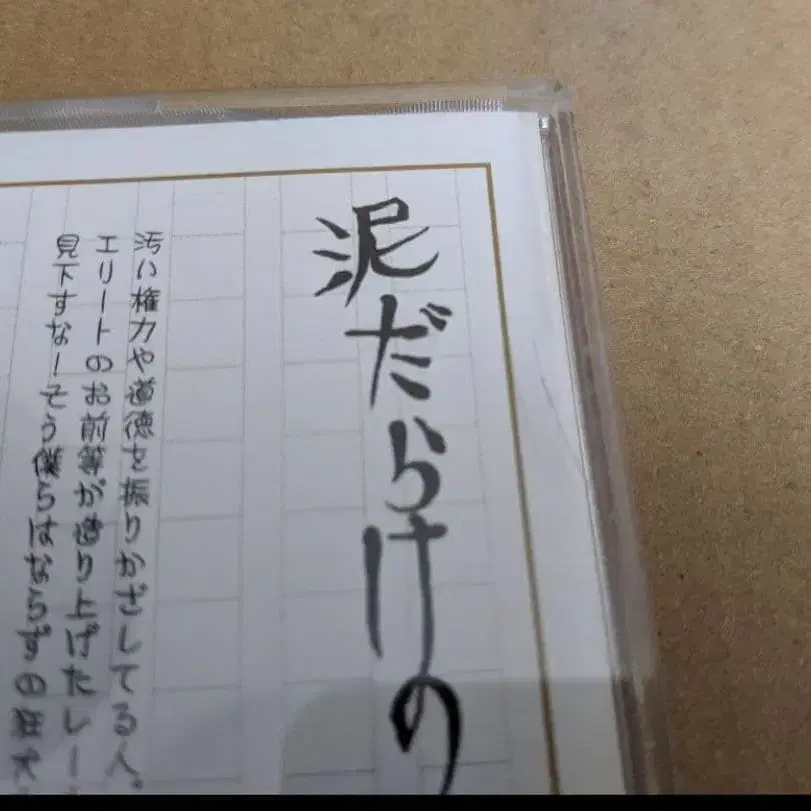 泥だらけの
汚い権力や道徳を振りかざしてる人。
エリートのお前等が造り上げたレー
見下すなーそう僕らはならず